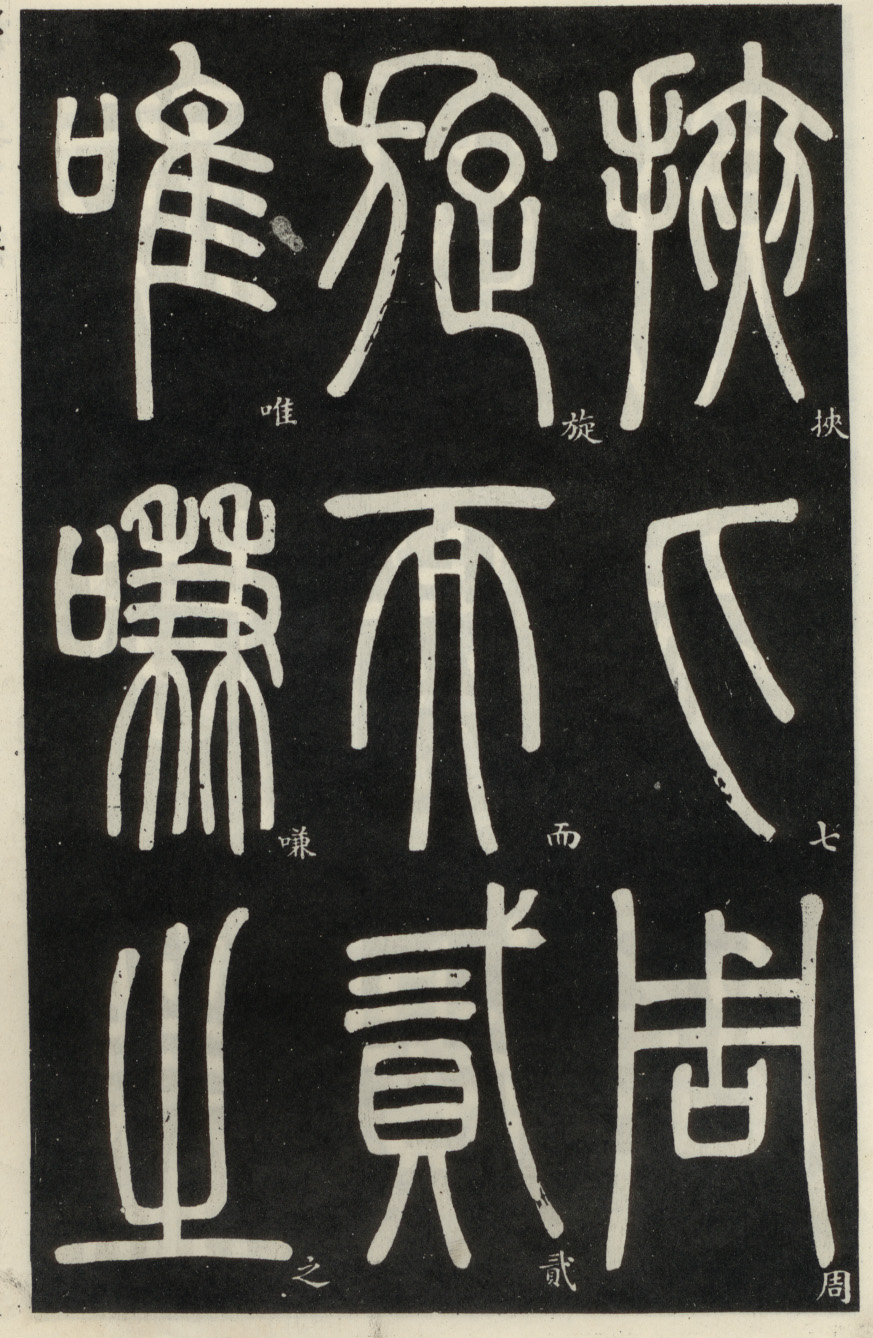 挾七周
旋而貳
唯嗛之